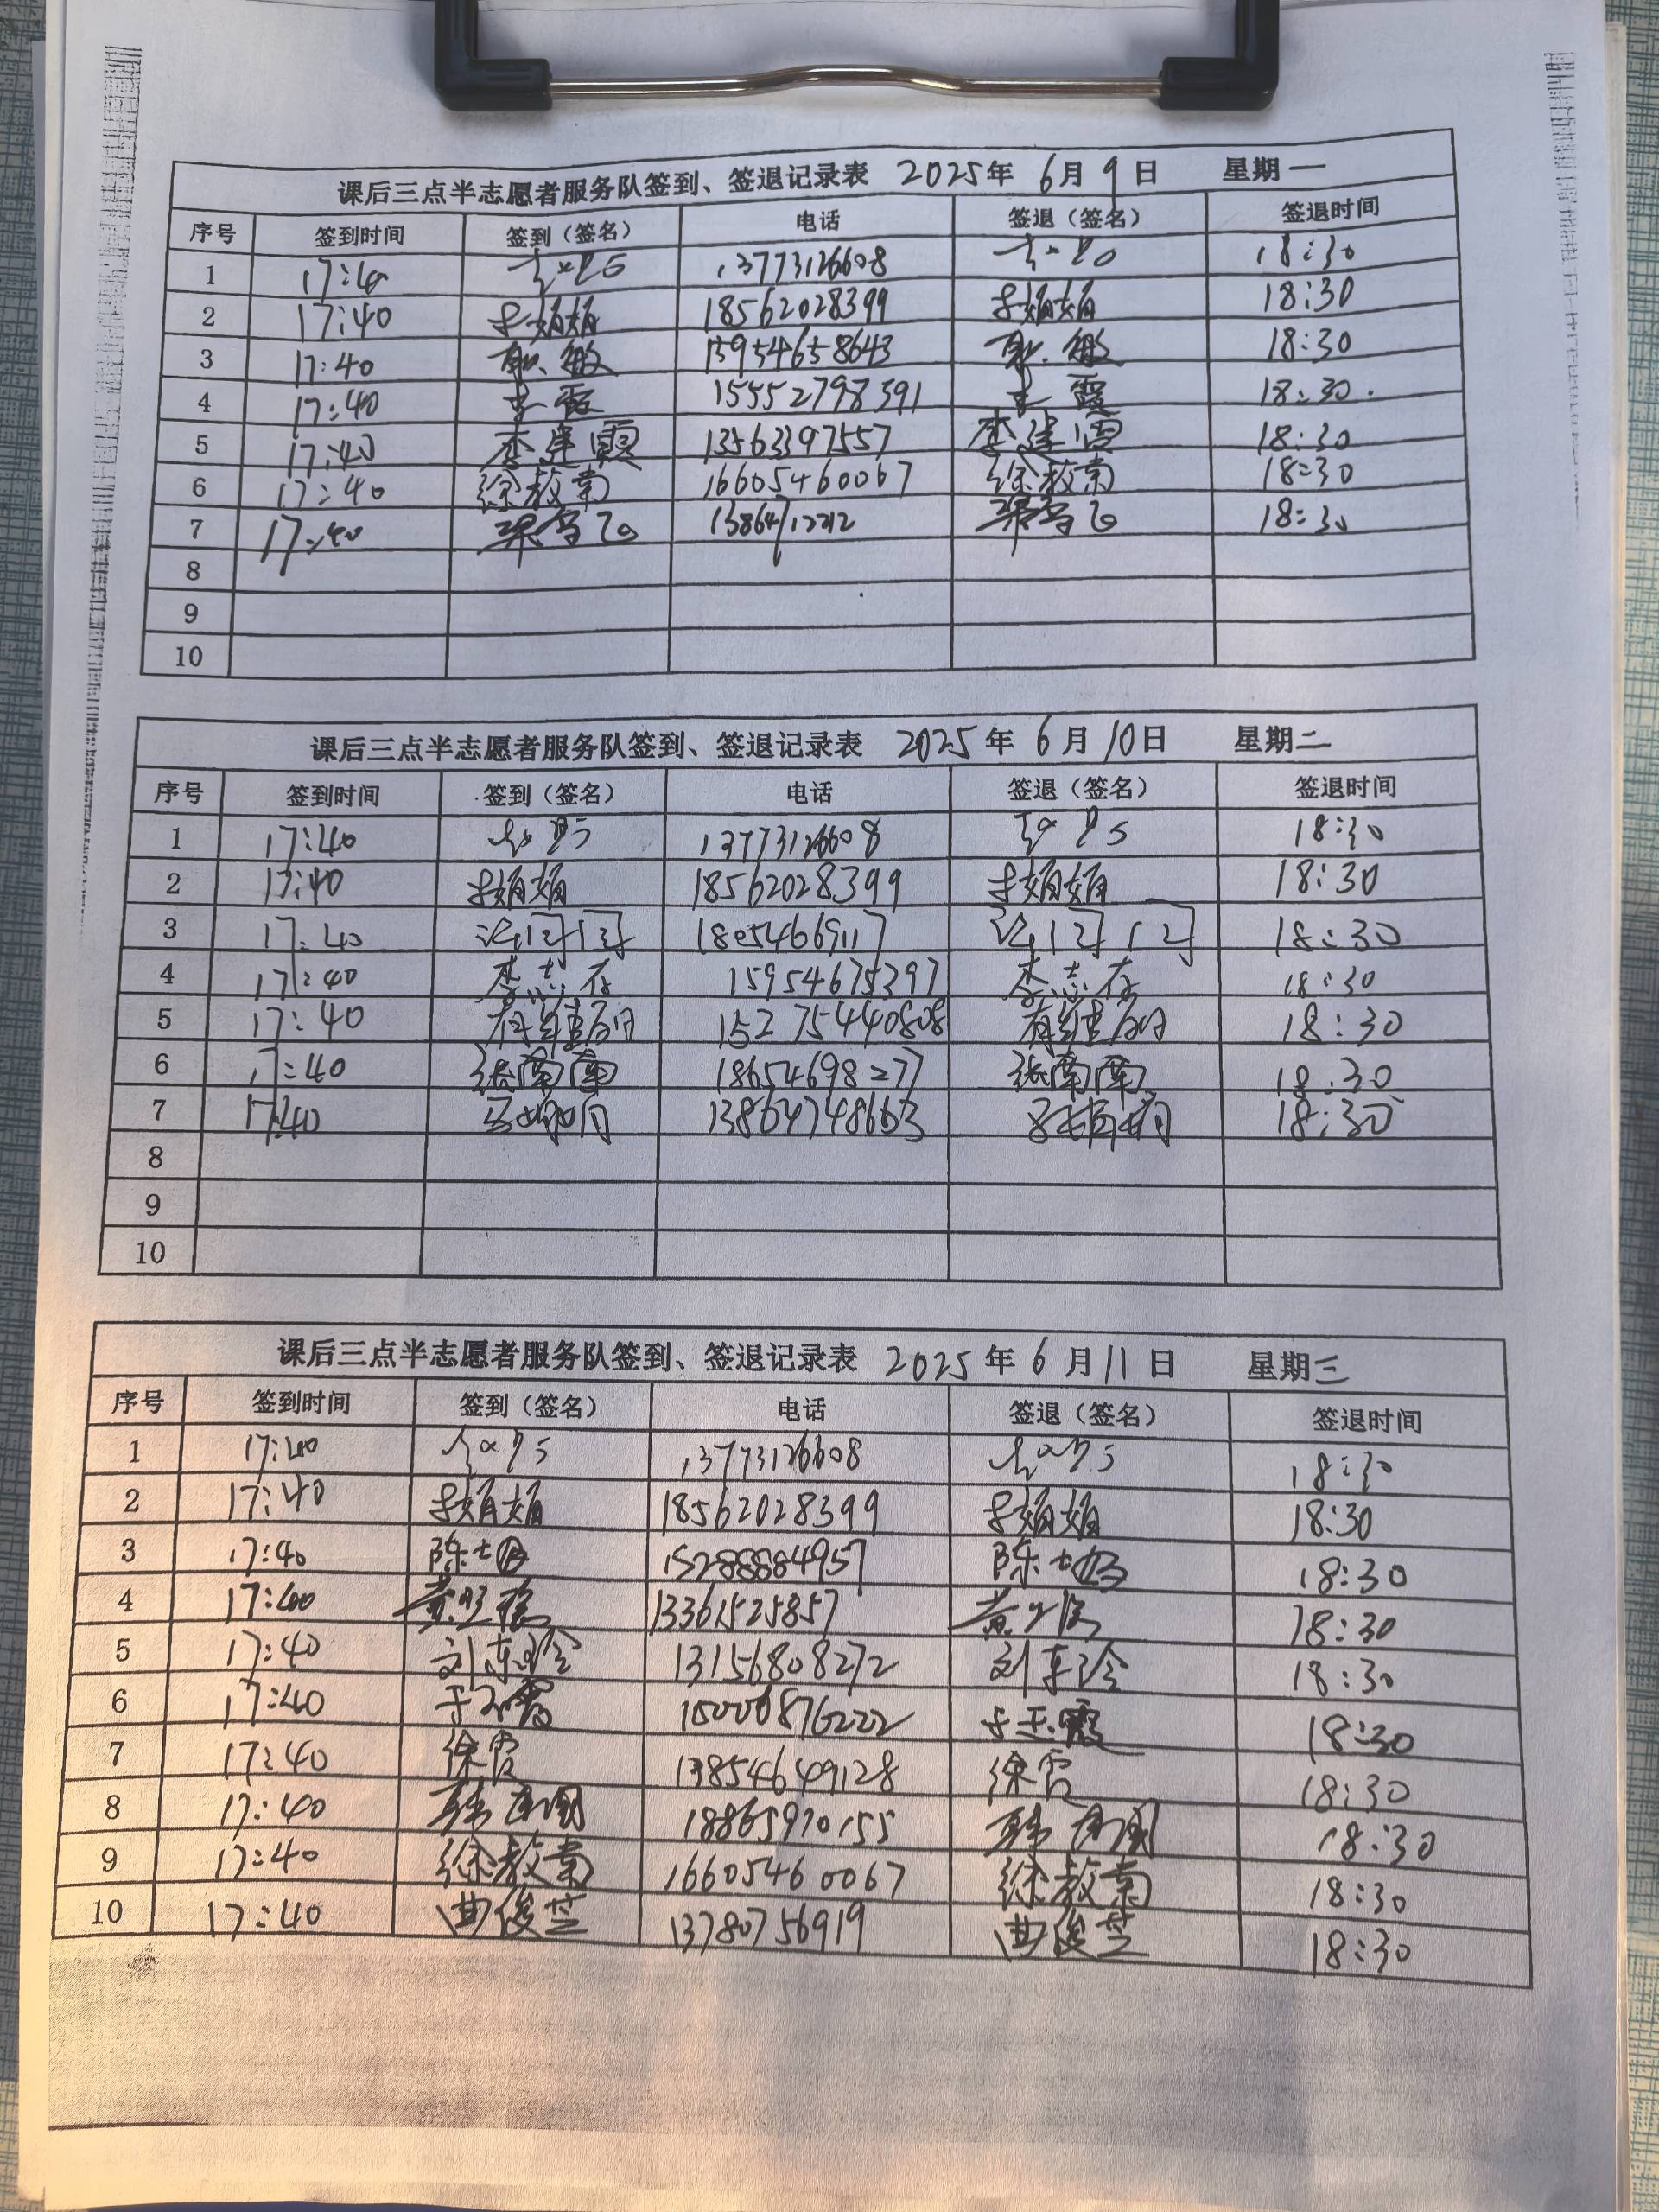 课后三点半志愿者服务队签到、签退记录表 2025年 6月 9日 星期一
序号 签到时间 签到（签名） 电话 签退（签名） 签退时间
1 17:40 13773126608 18:30
2 17:40 娟娟 18562028399 娟娟 18:30
3 17:40 敏 15954658643 敏 18:30
4 17:40 霞 15552798391 霞 18:30.
5 17:40 李建霞 13563397557 李建霞 18:30
6 17:40 徐教南 16605460067 徐教南 18:30
7 17:40 18:30
8
9
10
课后三点半志愿者服务队签到、签退记录表 2025年 6月 10日 星期二
序号 签到时间 签到（签名） 电话 签退（签名） 签退时间
1 17:40 13773126608 18:30
2 17:40 娟娟 18562028399 娟娟 18:30
3 17:40 18054669117 18:30
4 17:40 李志存 15954675397 李志存 18:30
5 17:40 15275440808 18:30
6 17:40 张南南 18654698277 张南南 18:30
7 17:40 13864748663 18:30
8
9
10
课后三点半志愿者服务队签到、签退记录表 2025年 6月 11日 星期三
序号 签到时间 签到（签名） 电话 签退（签名） 签退时间
1 17:40 13773126608 18:30
2 17:40 娟娟 18562028399 娟娟 18:30
3 17:40 陈 15288884957 陈 18:30
4 17:40 黄 13361525857 黄 18:30
5 17:40 刘东玲 13156808272 刘东玲 18:30
6 17:40 于玉霞 15006876222 于玉霞 18:30
7 17:40 徐霞 13854649128 徐霞 18:30
8 17:40 韩 18865970155 韩 18:30
9 17:40 徐教南 16605460067 徐教南 18:30
10 17:40 曲俊芝 13780756919 曲俊芝 18:30